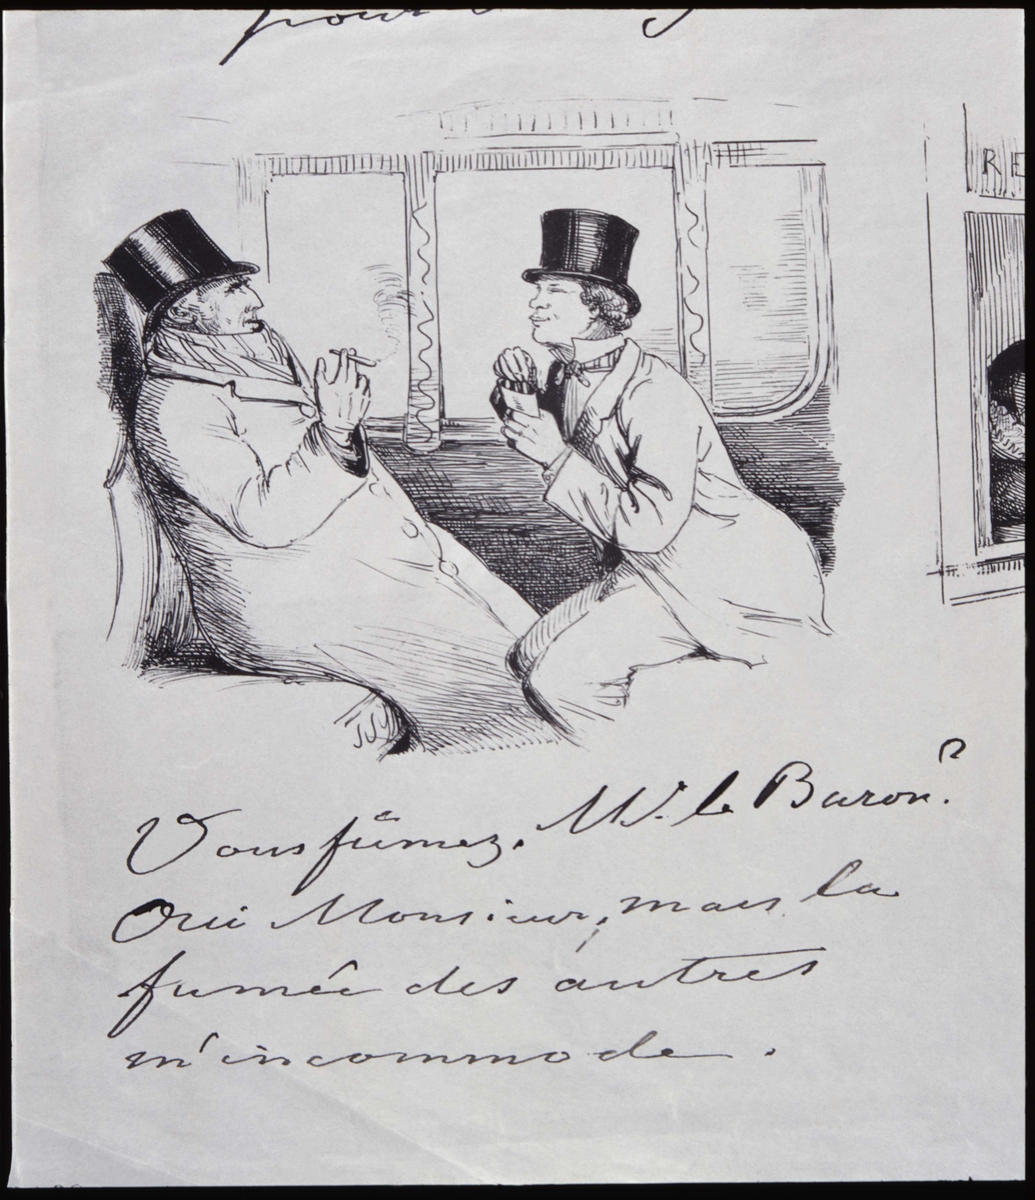 pour
RE
Vous fûmez, Mr. le Baron?
Oui Monsieur, mais la
fumée des autres
m'incommode.